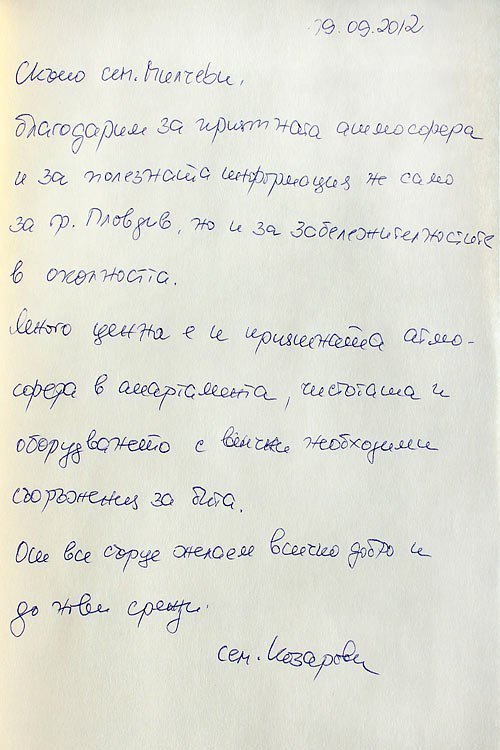 19.09.2012
Скъпо сем. Милчеви,
благодарим за приятната атмосфера
и за полезната информация не само
за гр. Пловдив, но и за забележителностите
в околността.
Много ценна е и приятната атмо-
сфера в апартамента, чистотата и
оборудването с всички необходими
съоръжения за бита.
От все сърце желаем всичко добро и
до нови срещи.
сем. Козарови